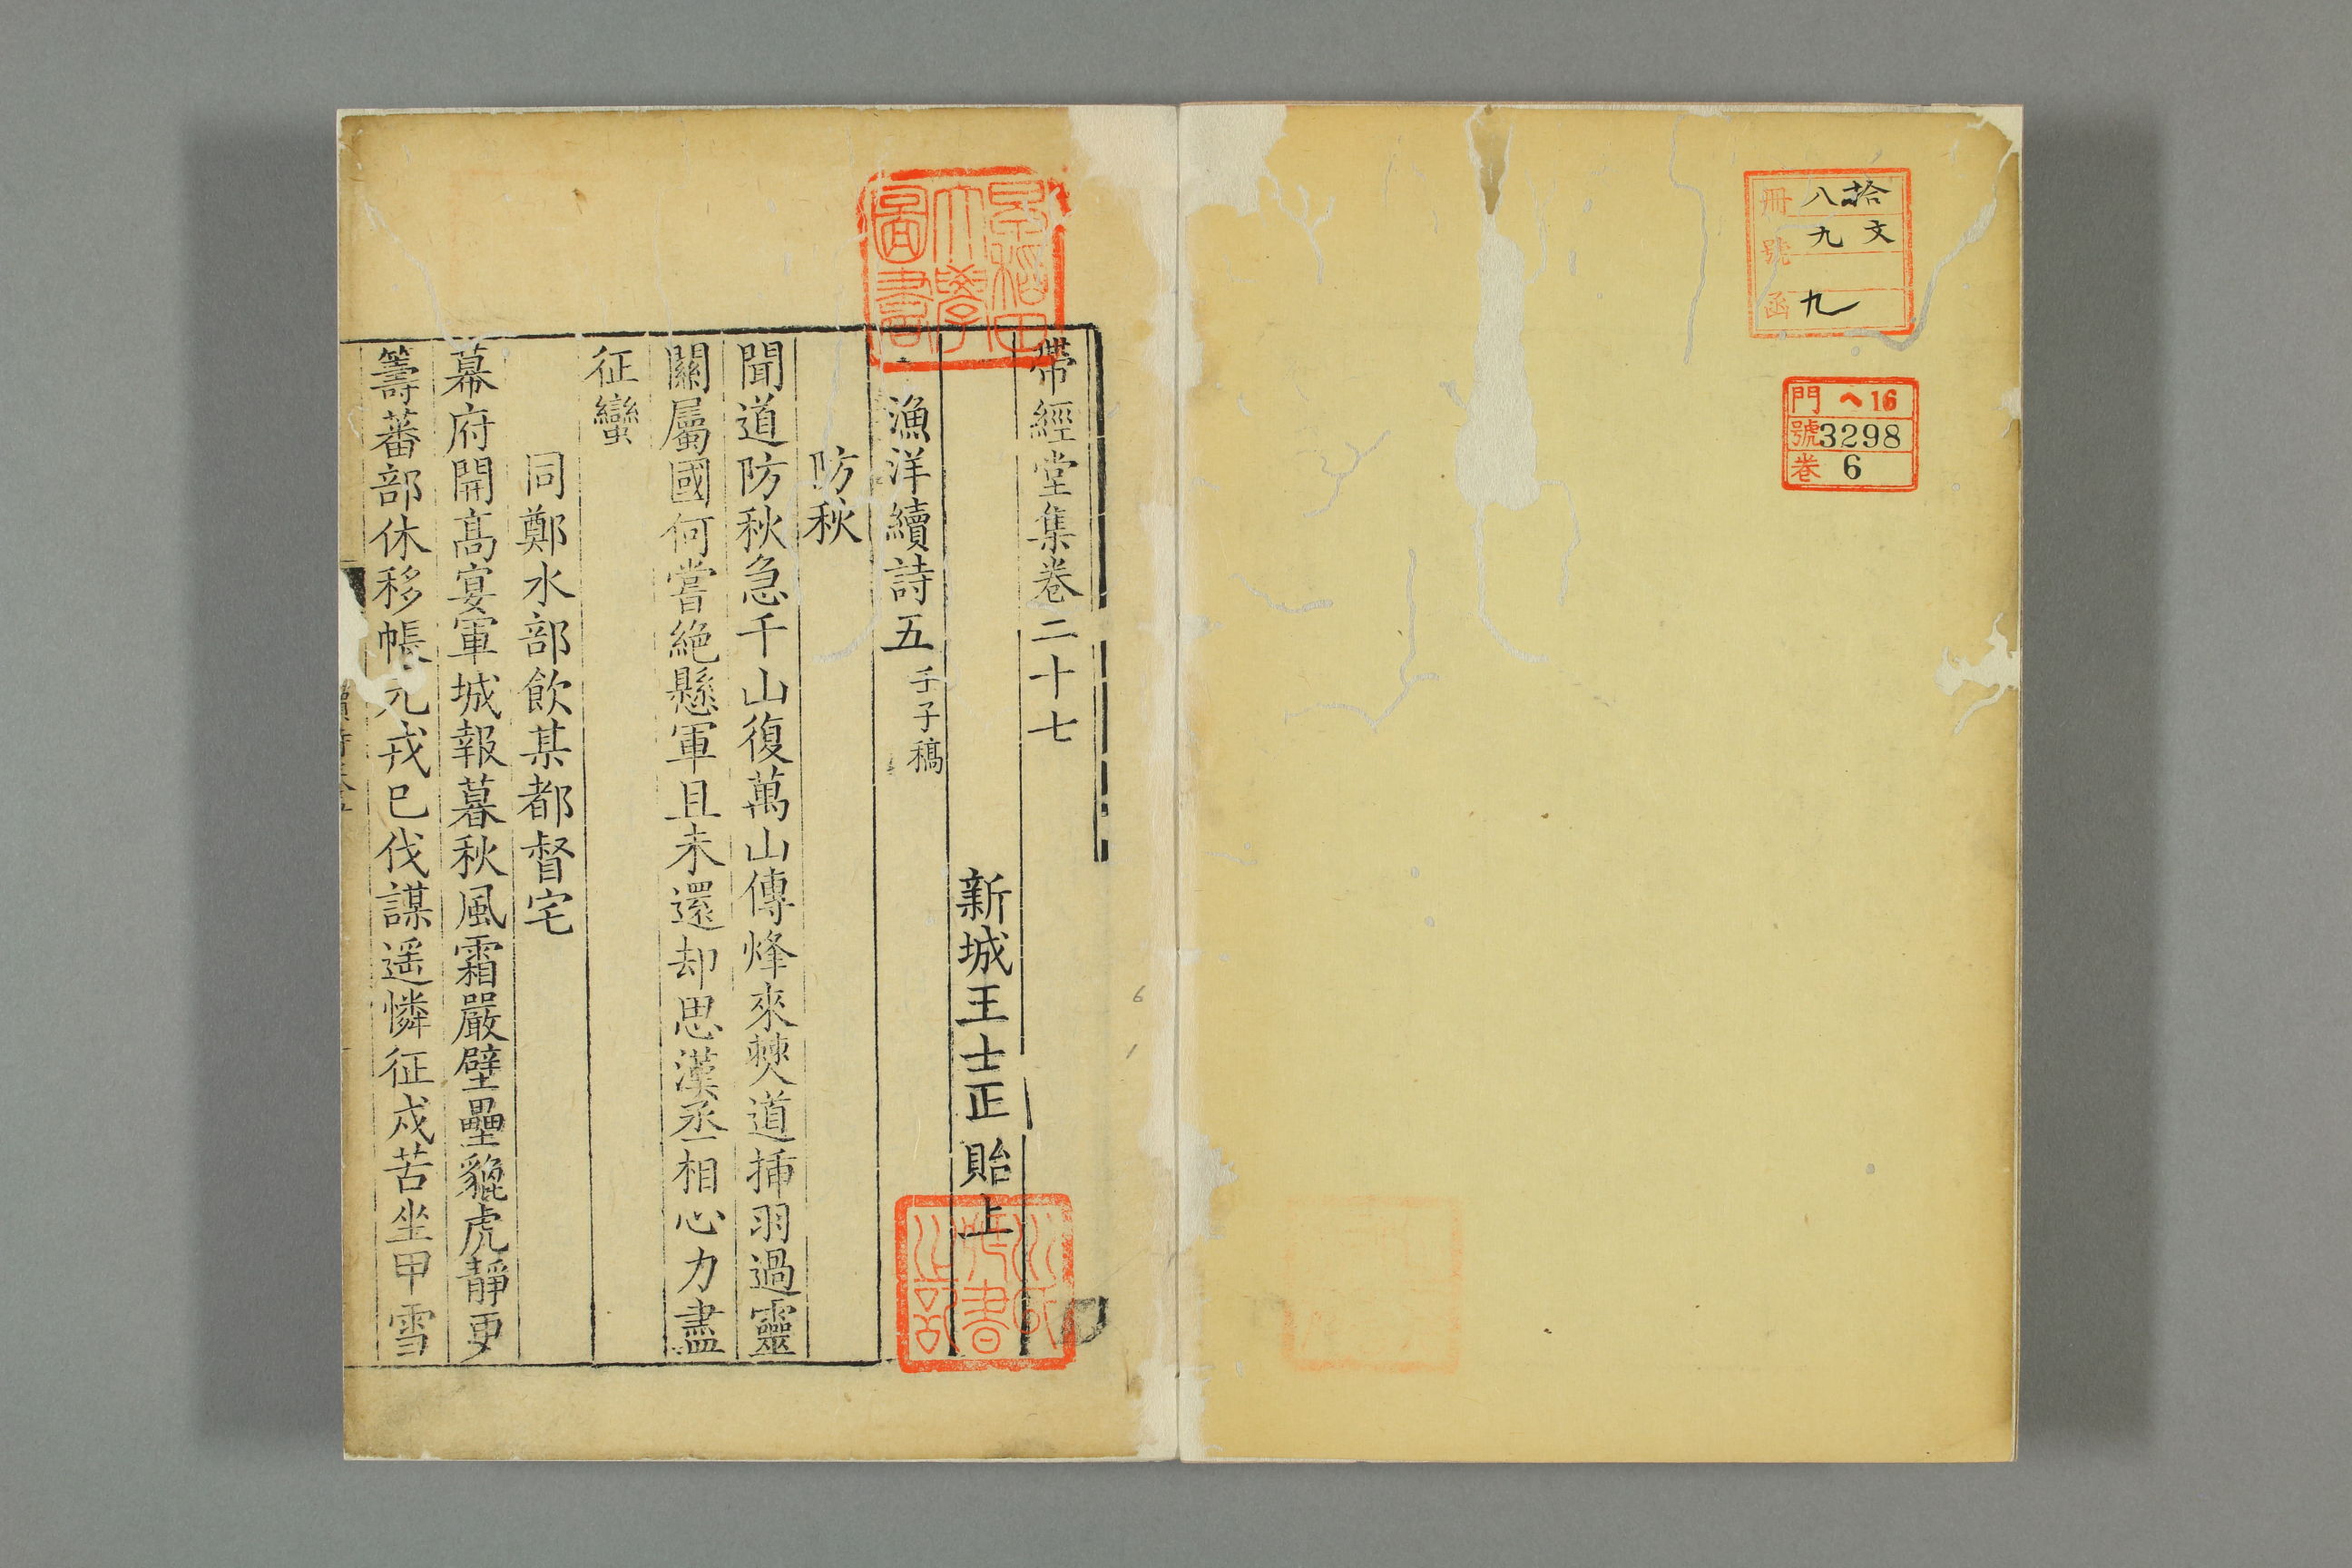 冊 八拾
號 九文
函 九
門 ヘ16
號 3298
卷 6
早稻田
大學
圖書
帶經堂集卷二十七
新城王士正貽上
漁洋續詩五 壬子稿
防秋
聞道防秋急千山復萬山傳烽來僰道揷羽過靈
關屬國何嘗絶懸軍且未還却思漢丞相心力盡
征蠻
同鄭水部飲某都督宅
幕府開高宴軍城報暮秋風霜嚴壁壘貔虎靜更
籌蕃部休移帳元戎已伐謀遥憐征戍苦坐甲雪